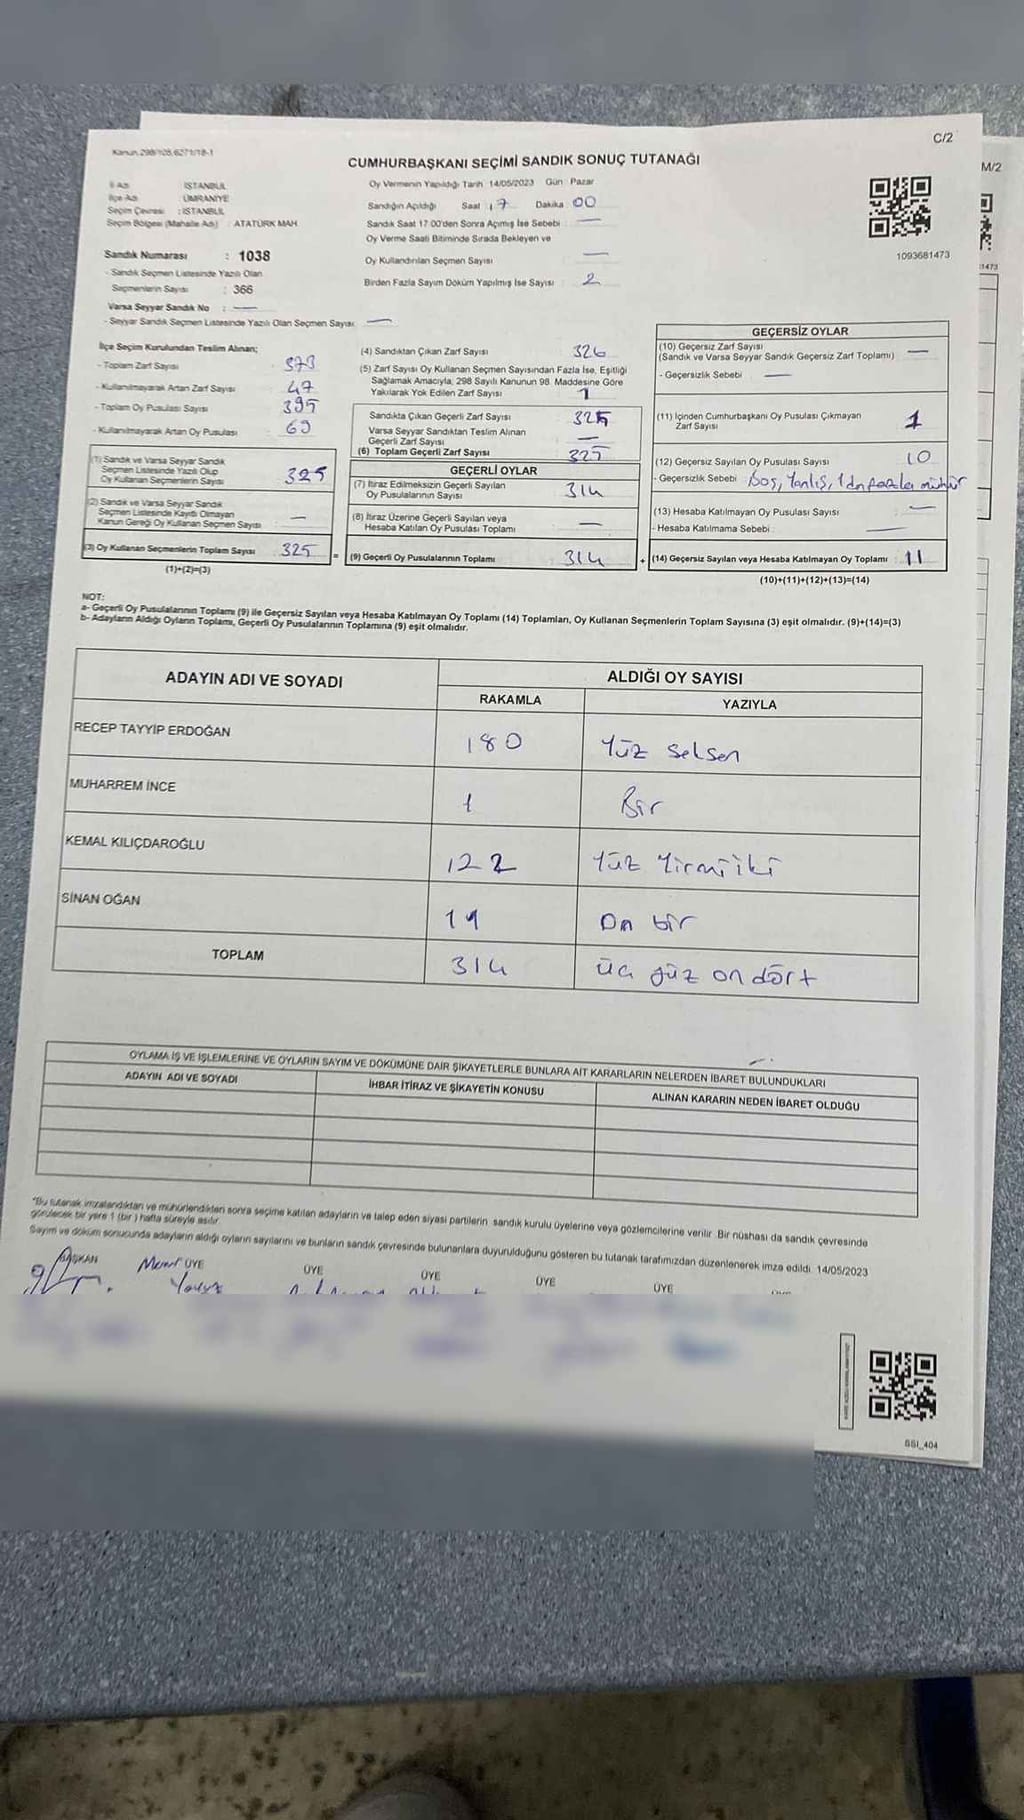 C/2
Kanun.298/105,6271/18-1
CUMHURBAŞKANI SEÇİMİ SANDIK SONUÇ TUTANAĞI
M/2
İl Adı : İSTANBUL
İlçe Adı : ÜMRANİYE
Seçim Çevresi : İSTANBUL
Seçim Bölgesi (Mahalle Adı) : ATATÜRK MAH
Sandık Numarası : 1038
- Sandık Seçmen Listesinde Yazılı Olan
Seçmenlerin Sayısı : 366
Varsa Seyyar Sandık No : —
- Seyyar Sandık Seçmen Listesinde Yazılı Olan Seçmen Sayısı: —
Oy Vermenin Yapıldığı Tarih :14/05/2023 Gün : Pazar
Sandığın Açıldığı Saat : 17 Dakika : 00
Sandık Saat 17:00'den Sonra Açılmış İse Sebebi : —
Oy Verme Saati Bitiminde Sırada Bekleyen ve
Oy Kullandırılan Seçmen Sayısı : —
Birden Fazla Sayım Döküm Yapılmış İse Sayısı : 2
1093681473
1473
İlçe Seçim Kurulundan Teslim Alınan;
- Toplam Zarf Sayısı : 373
- Kullanılmayarak Artan Zarf Sayısı : 47
- Toplam Oy Pusulası Sayısı : 395
- Kullanılmayarak Artan Oy Pusulası : 69
(1) Sandık ve Varsa Seyyar Sandık
Seçmen Listesinde Yazılı Olup
Oy Kullanan Seçmenlerin Sayısı : 325
(2) Sandık ve Varsa Seyyar Sandık
Seçmen Listesinde Kayıtlı Olmayan
Kanun Gereği Oy Kullanan Seçmen Sayısı : —
(3) Oy Kullanan Seçmenlerin Toplam Sayısı : 325
(1)+(2)=(3)
(4) Sandıktan Çıkan Zarf Sayısı : 326
(5) Zarf Sayısı Oy Kullanan Seçmen Sayısından Fazla İse, Eşitliği
Sağlamak Amacıyla, 298 Sayılı Kanunun 98. Maddesine Göre
Yakılarak Yok Edilen Zarf Sayısı : 1
Sandıkta Çıkan Geçerli Zarf Sayısı : 325
Varsa Seyyar Sandıktan Teslim Alınan
Geçerli Zarf Sayısı : —
(6) Toplam Geçerli Zarf Sayısı : 325
GEÇERLİ OYLAR
(7) İtiraz Edilmeksizin Geçerli Sayılan
Oy Pusulalarının Sayısı : 314
(8) İtiraz Üzerine Geçerli Sayılan veya
Hesaba Katılan Oy Pusulası Toplamı : —
= (9) Geçerli Oy Pusulalarının Toplamı : 314
GEÇERSİZ OYLAR
(10) Geçersiz Zarf Sayısı : —
(Sandık ve Varsa Seyyar Sandık Geçersiz Zarf Toplamı)
- Geçersizlik Sebebi : —
(11) İçinden Cumhurbaşkanı Oy Pusulası Çıkmayan
Zarf Sayısı : 1
(12) Geçersiz Sayılan Oy Pusulası Sayısı : 10
- Geçersizlik Sebebi : Boş, Yanlış, 1 den fazla mühür
(13) Hesaba Katılmayan Oy Pusulası Sayısı : —
- Hesaba Katılmama Sebebi : —
+ (14) Geçersiz Sayılan veya Hesaba Katılmayan Oy Toplamı : 11
(10)+(11)+(12)+(13)=(14)
NOT:
a- Geçerli Oy Pusulalarının Toplamı (9) ile Geçersiz Sayılan veya Hesaba Katılmayan Oy Toplamı (14) Toplamları, Oy Kullanan Seçmenlerin Toplam Sayısına (3) eşit olmalıdır. (9)+(14)=(3)
b- Adayların Aldığı Oyların Toplamı, Geçerli Oy Pusulalarının Toplamına (9) eşit olmalıdır.
ADAYIN ADI VE SOYADI
ALDIĞI OY SAYISI
RAKAMLA YAZIYLA
RECEP TAYYİP ERDOĞAN 180 Yüz Seksen
MUHARREM İNCE 1 Bir
KEMAL KILIÇDAROĞLU 122 Yüz Yirmi iki
SİNAN OĞAN 11 On bir
TOPLAM 314 üç yüz on dört
OYLAMA İŞ VE İŞLEMLERİNE VE OYLARIN SAYIM VE DÖKÜMÜNE DAİR ŞİKAYETLERLE BUNLARA AİT KARARLARIN NELERDEN İBARET BULUNDUKLARI
ADAYIN ADI VE SOYADI İHBAR İTİRAZ VE ŞİKAYETİN KONUSU ALINAN KARARIN NEDEN İBARET OLDUĞU
*Bu tutanak imzalandıktan ve mühürlendikten sonra seçime katılan adayların ve talep eden siyasi partilerin sandık kurulu üyelerine veya gözlemcilerine verilir. Bir nüshası da sandık çevresinde
görülecek bir yere 1 (bir) hafta süreyle asılır.
Sayım ve döküm sonucunda adayların aldığı oyların sayılarını ve bunların sandık çevresinde bulunanlara duyurulduğunu gösteren bu tutanak tarafımızdan düzenlenerek imza edildi. 14/05/2023
BAŞKAN ÜYE ÜYE ÜYE ÜYE ÜYE
SSI_404